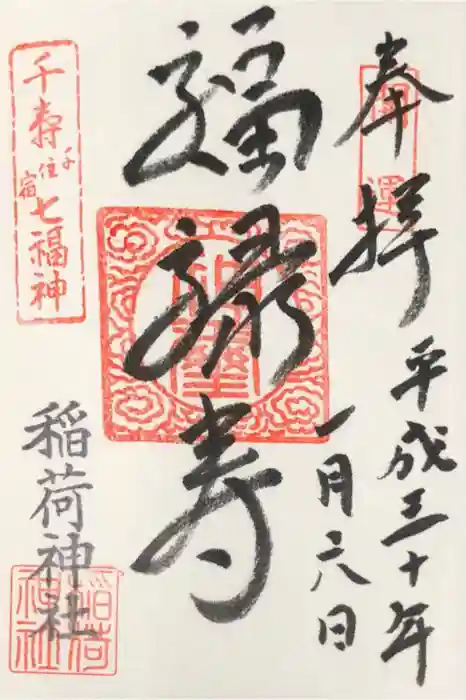 奉拝
平成三十年
一月六日
福禄寿
千寿七福神
千住宿
稲荷神社
稲荷
神社